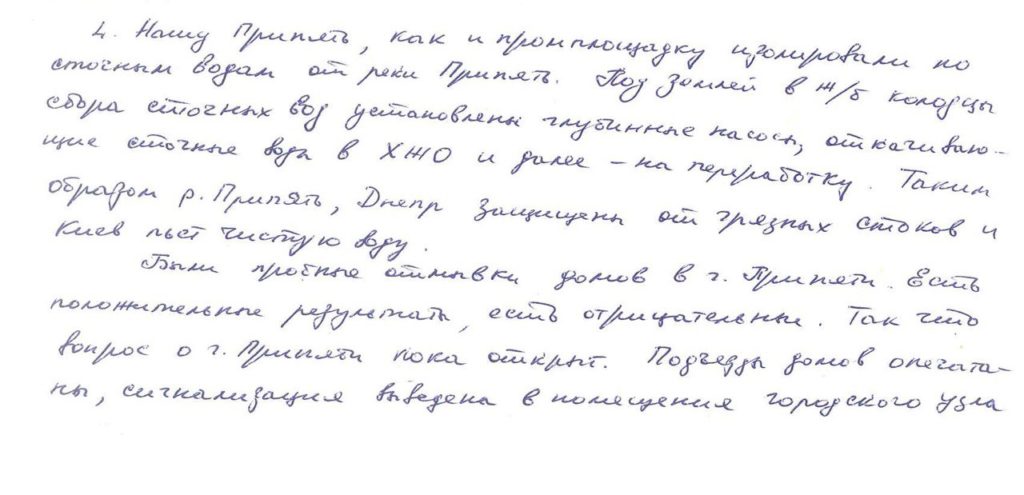 4. Нашу Припять, как и промплощадку изолировали по
сточным водам от реки Припять. Под землей в ж/б колодцы
сбора сточных вод установлены глубинные насосы, откачиваю-
щие сточные воды в ХЖО и далее – на переработку. Таким
образом р. Припять, Днепр защищены от грязных стоков и
Киев пьет чистую воду.
Были пробные отмывки домов в г. Припяти. Есть
положительные результаты, есть отрицательные. Так что
вопрос о г. Припяти пока открыт. Подъезды домов опечата-
ны, сигнализация выведена в помещения городского узла